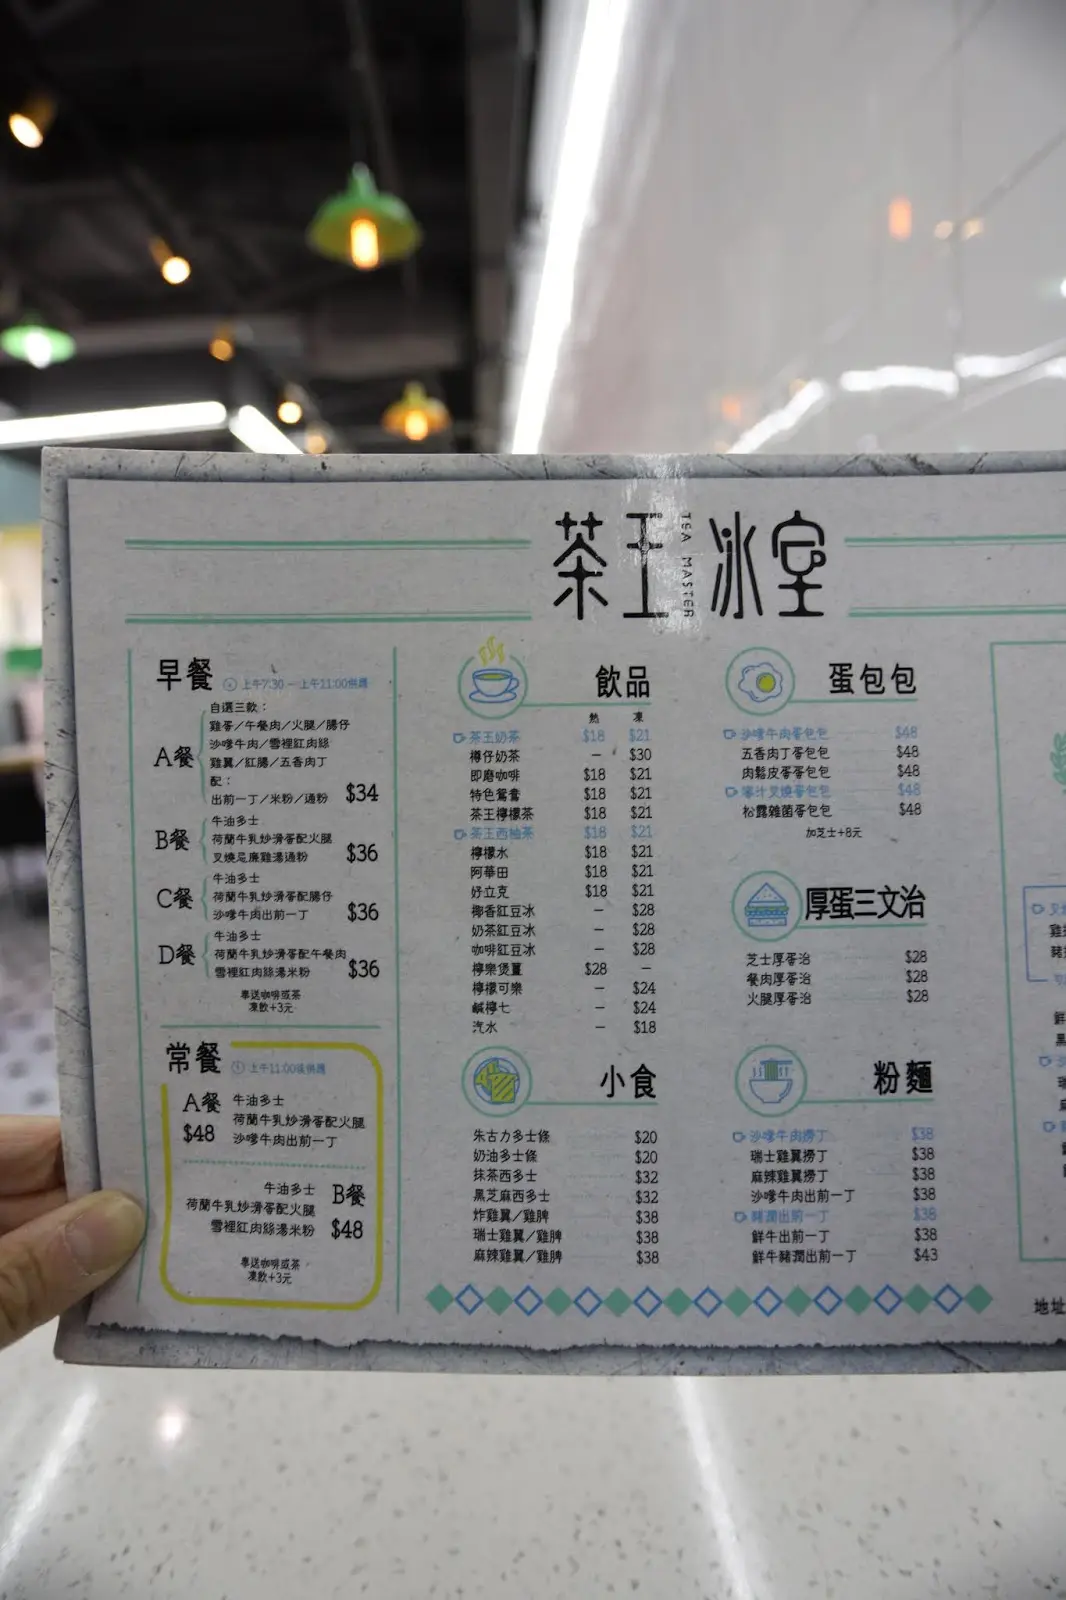 茶王冰室
TEA MASTER
早餐 上午7:30 — 上午11:00供應
A餐
自選三款：
雞蛋／午餐肉／火腿／腸仔
沙嗲牛肉／雪裡紅肉絲
雞翼／紅腸／五香肉丁
配：
出前一丁／米粉／通粉 $34
B餐
牛油多士
荷蘭牛乳炒滑蛋配火腿
叉燒忌廉雞湯通粉 $36
C餐
牛油多士
荷蘭牛乳炒滑蛋配腸仔
沙嗲牛肉出前一丁 $36
D餐
牛油多士
荷蘭牛乳炒滑蛋配午餐肉
雪裡紅肉絲湯米粉 $36
奉送咖啡或茶
凍飲+3元
常餐 上午11:00後供應
A餐 $48
牛油多士
荷蘭牛乳炒滑蛋配火腿
沙嗲牛肉出前一丁
B餐 $48
牛油多士
荷蘭牛乳炒滑蛋配火腿
雪裡紅肉絲湯米粉
奉送咖啡或茶
凍飲+3元
飲品
熱 凍
茶王奶茶 $18 $21
樽仔奶茶 — $30
即磨咖啡 $18 $21
特色鴛鴦 $18 $21
茶王檸檬茶 $18 $21
茶王西柚茶 $18 $21
檸檬水 $18 $21
阿華田 $18 $21
好立克 $18 $21
椰香紅豆冰 — $28
奶茶紅豆冰 — $28
咖啡紅豆冰 — $28
檸樂煲薑 $28 —
檸檬可樂 — $24
鹹檸七 — $24
汽水 — $18
小食
朱古力多士條 $20
奶油多士條 $20
抹茶西多士 $32
黑芝麻西多士 $32
炸雞翼／雞脾 $38
瑞士雞翼／雞脾 $38
麻辣雞翼／雞脾 $38
蛋包包
沙嗲牛肉蛋包包 $48
五香肉丁蛋包包 $48
肉鬆皮蛋蛋包包 $48
汁叉燒蛋包包 $48
松露雜菌蛋包包 $48
加芝士+8元
厚蛋三文治
芝士厚蛋治 $28
餐肉厚蛋治 $28
火腿厚蛋治 $28
粉麵
沙嗲牛肉撈丁 $38
瑞士雞翼撈丁 $38
麻辣雞翼撈丁 $38
沙嗲牛肉出前一丁 $38
豬潤出前一丁 $38
鮮牛出前一丁 $38
鮮牛豬潤出前一丁 $43
地址